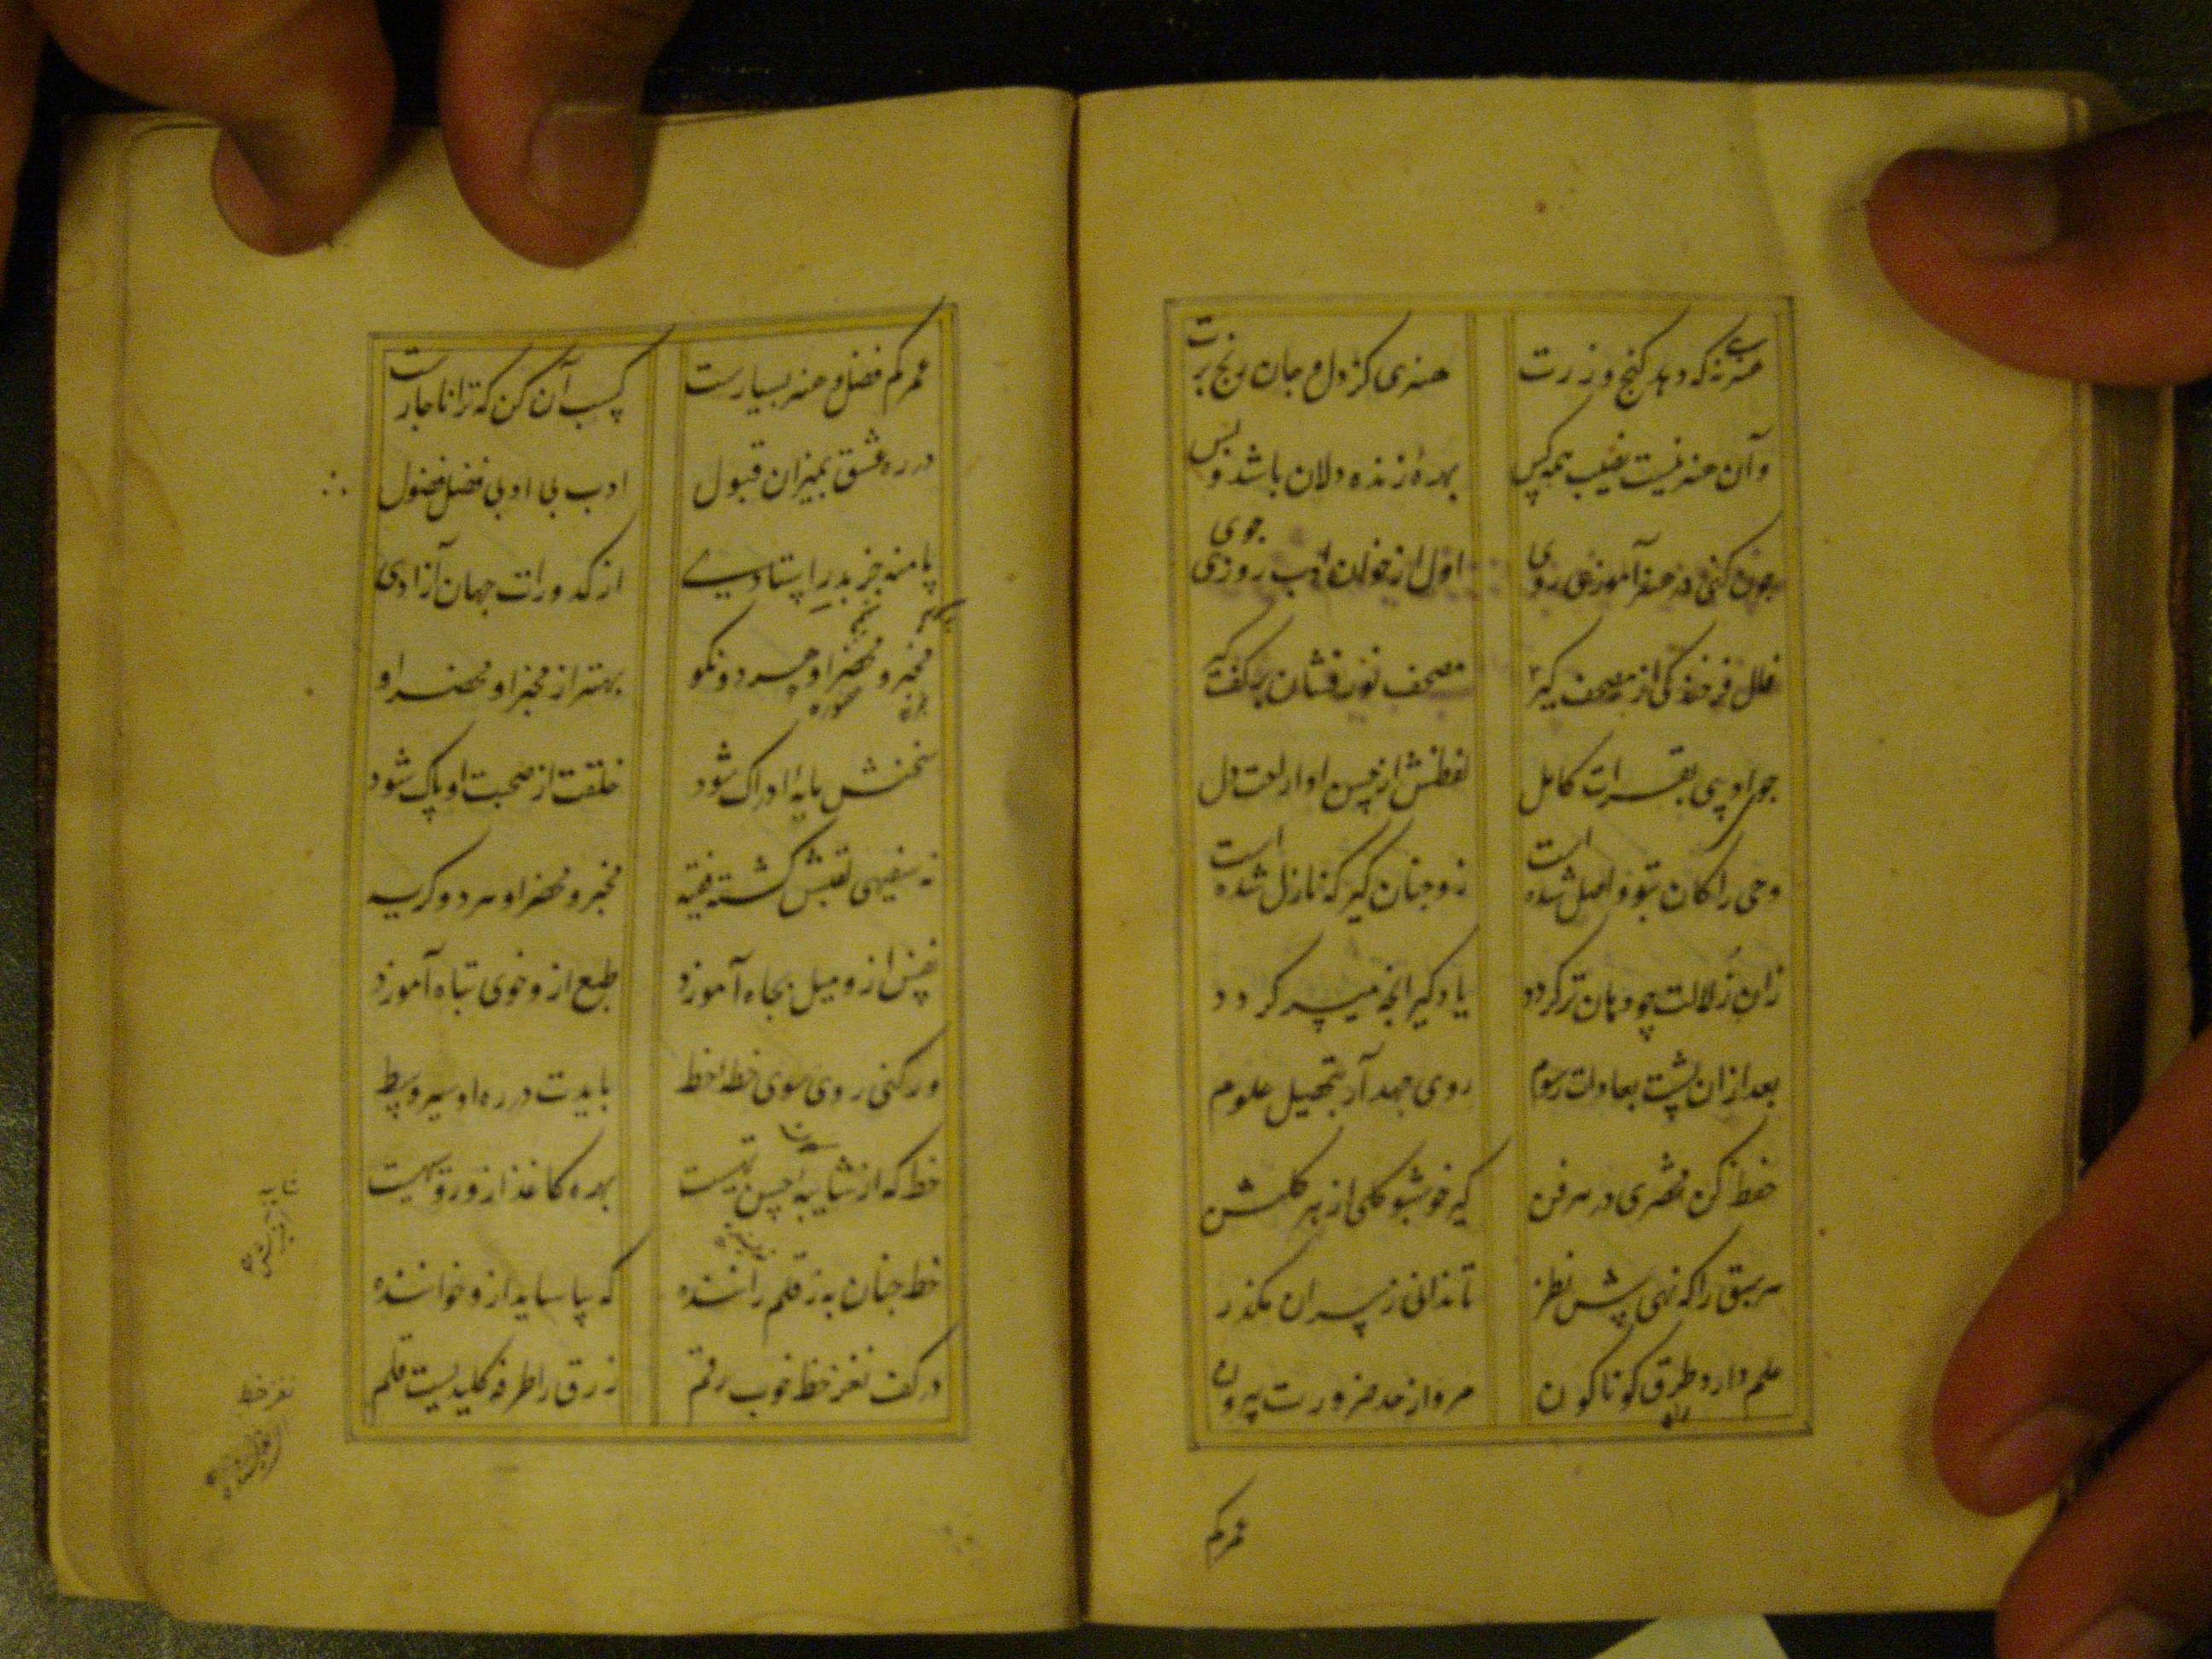 هنری نه که دهد گنج و زرت
هنری کز دل و جان رنج برت
و آن هنر نیست نصیب همه کس
بهره زنده دلان باشد و بس
چون کنی در هنرآموزی روی
اول از خوان ادب روزی جوی
فال فرخندگی از مصحف گیر
مصحف نور فشان بر کف گیر
جو از وی بقرات کامل
لفظش از حسن ادا
وحی را کان بتو واصل شده است
زو چنان گیر که نازل شده است
زان زلالت چو دهان تر گردد
یاد گیر آنچه میسر گردد
بعد از آن پشت بعادات رسوم
روی جهد آر بتحصیل علوم
حفظ کن مختصری در هر فن
گیر خوشبو گلی از هر گلشن
هر سبق را که نهی پیش نظر
تا ندانی ز پس آن مگذر
علم دارد طرق گوناگون
راه
مرو از حد ضرورت بیرون
عمر کم
عمر کم فضل و هنر بسیارست
کسب آن کن که ترا ناچارست
در ره عشق بمیزان قبول
ادب بی ادبی فضل فضول
پا منه جز بدر استادی
از کدورات جهان آزادی
مخبر و محضر او هر دو نکو
بهتر از مخبر او محضر او
سخنش مایه ادراک شود
خلقت از صحبت او پاک شود
نه سفیهی لقبش گشته فقیه
مخبر و محضر او هر دو کریه
نفس ازو میل بجاه آموزد
طبع ازو خوی تباه آموزد
ور کنی روی سوی خطه خط
بایدت در ره او سیر وسط
خط که از شایبه حسن تهیست
بهره کاغذ ازو روسیهیست
خط چنان به ز قلم راننده
که بیاساید ازو خواننده
در کف نغز خط خوب رقم
رزق را طرفه کلیدیست قلم
نغز خط